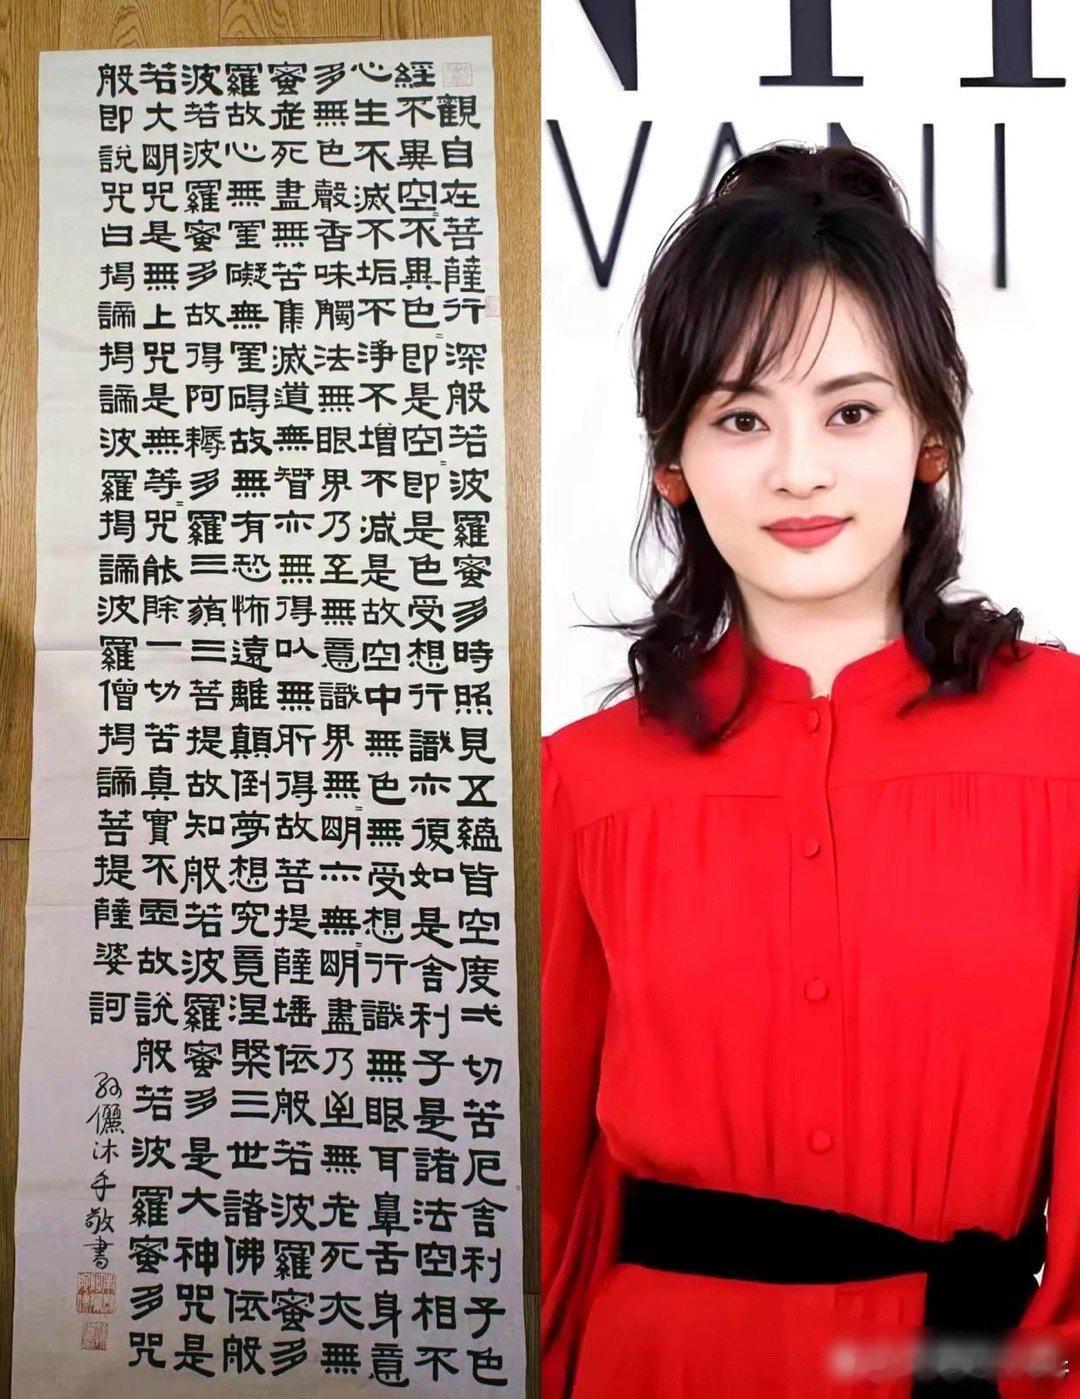 般若波羅蜜多心經
觀自在菩薩行深般若波羅蜜多時照見五蘊皆空度弌切苦厄舍利子色
不異空=不異色=即是空=即是色受想行識亦復如是舍利子是諸法空相不
生不滅不垢不淨不增不減是故空中無色無受想行識無眼耳鼻舌身意
無色聲香味觸法無眼界乃至無意識界無=明亦無=明盡乃至無老死亦無
老死盡無苦集滅道無智亦無得以無所得故菩提薩埵依般若波羅蜜多
故心無罣礙無罣碍故無有恐怖遠離顛倒夢想究竟涅槃三世諸佛依般
若波羅蜜多故得阿耨多羅三藐三菩提故知般若波羅蜜多是大神咒是
大明咒是無上咒是無等=咒能除一切苦真實不虛故說般若波羅蜜多咒
即說咒曰揭諦揭諦波羅揭諦波羅僧揭諦菩提薩婆訶
孫儷沐手敬書